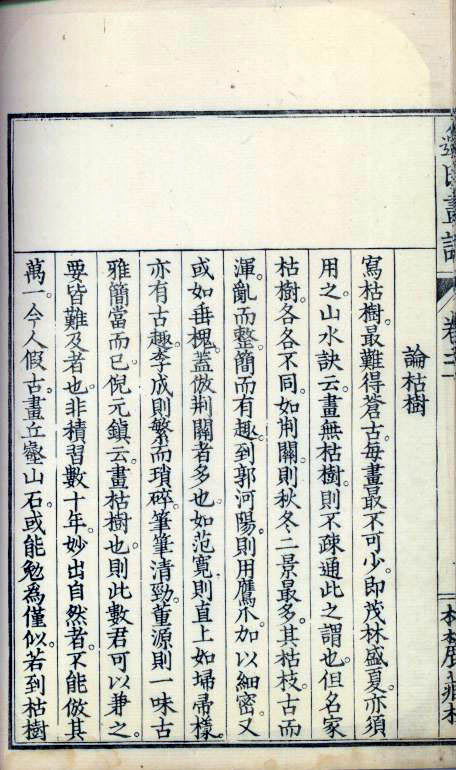 論枯樹
寫枯樹。最難得蒼古。每畫最不可少。即茂林盛夏。亦須
用之。山水訣云。畫無枯樹。則不疎通。此之謂也。但名家
枯樹。各各不同。如荆關則秋冬二景最多。其枯枝。古而
渾。亂而整。簡而有趣。到郭河陽。則用鷹爪。加以細密。又
或如垂槐。蓋倣荆關者多也。如范寛則直上如埽帚樣。
亦有古趣。李成則繁而瑣碎。筆筆清勁。董源則一味古
雅簡當而已。倪元鎮云。畫枯樹也。則此數君可以兼之。
要皆難及者也。非積習數十年。妙出自然者。不能倣其
萬一。今人假古。畫丘壑山石。或能勉為僅似。若到枯樹
畫譜
卷二